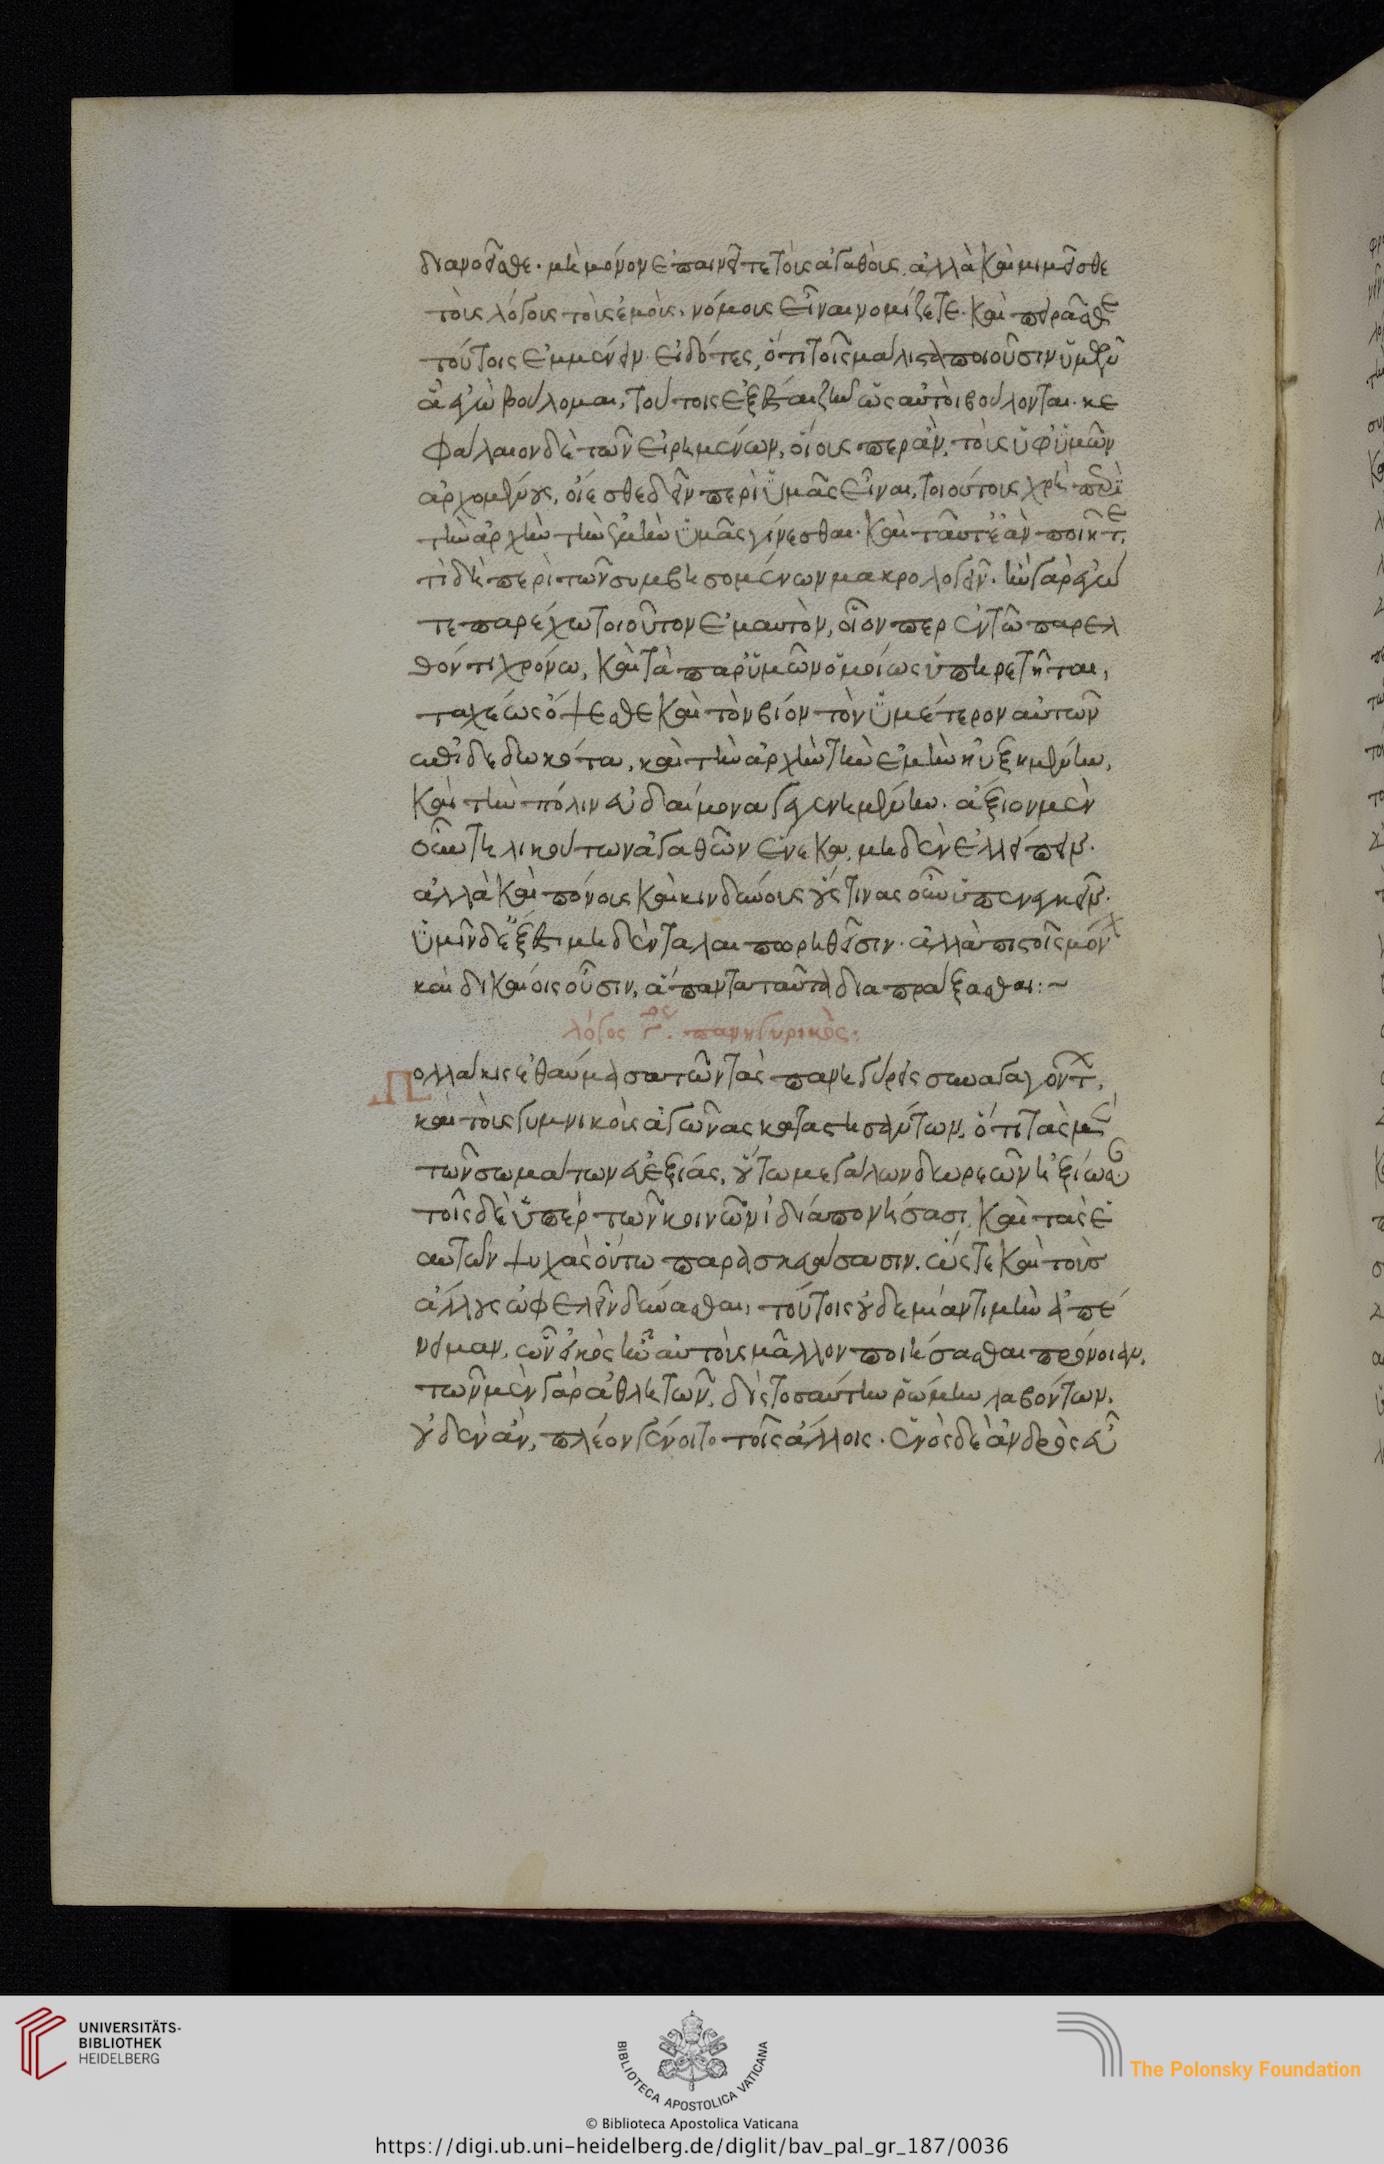 διανοεῖσθε. μὴ μόνον ἐπαινεῖτε τοὺς ἀγαθοὺς. ἀλλὰ καὶ μιμεῖσθε
τοὺς λόγους τοὺς ἐμοὺς, νόμους εἶναι νομίζετε. καὶ πειρᾶσθε
τούτοις ἐμμένειν. εἰδότες, ὅτι τοῖς μάλιστα ποιοῦσιν ὑμῶν
ἃ ἐγὼ βούλομαι, τούτοις ἐξέσται ζῆν ὡς αὐτοὶ βούλονται. κε
φάλαιον δὲ τῶν εἰρημένων, οἵους περ ἂν, τοὺς ὑφ' ὑμῶν
ἀρχομένους, οἴεσθε δεῖν περὶ ὑμᾶς εἶναι, τοιούτους χρὴ περὶ
τὴν ἀρχὴν τὴν ἐμὴν ὑμᾶς γίνεσθαι. καὶ ταῦτ' ἐὰν ποιῆτε,
τί δεῖ περὶ τῶν συμβησομένων μακρολογεῖν. ἢν γὰρ ἐγώ
τε παρέχω τοιοῦτον ἐμαυτὸν, οἷον περ ἐν τῷ παρελ
θόντι χρόνω, καὶ τὰ παρ' ὑμῶν ὁμοίως ὑπηρετῆται,
ταχέως ὄψεσθε καὶ τὸν βίον τὸν ὑμέτερον αὐτῶν
ἐπιδεδωκότα, καὶ τὴν ἀρχὴν τὴν ἐμὴν ηὐξημένην,
καὶ τὴν πόλιν εὐδαίμονα γεγενημένην. ἄξιον μὲν
οὖν τηλικούτων ἀγαθῶν ἕνεκα, μηδὲν ἐλλείπειν.
ἀλλὰ καὶ πόνους καὶ κινδύνους οὕστινας οὖν ὑπενεγκεῖν.
ὑμῖν δὲ ἔξεστι μηδὲν ταλαιπωρηθεῖσιν. ἀλλὰ πιστοῖς μόνον
καὶ δικαίοις οὖσιν, ἅπαντα ταῦτα διαπράξασθαι:~
λόγος . πανηγυρικὸς.
Πολλάκις ἐθαύμασα τῶν τὰς πανηγύρεις συναγαγόντων,
καὶ τοὺς γυμνικοὺς ἀγῶνας καταστησάντων, ὅτι τὰς μὲν
τῶν σωμάτων εὐεξίας, οὕτω μεγάλων δωρεῶν ἠξίωσαν
τοῖς δὲ ὑπὲρ τῶν κοινῶν ἰδία πονήσασι, καὶ τὰς ἑ
αυτῶν ψυχὰς οὕτω παρασκευάσασιν. ὥστε καὶ τοὺς
ἄλλους ὠφελεῖν δύνασθαι, τούτοις οὐδεμίαν τιμὴν ἀπέ
νειμαν, ὧν εἰκὸς ἦν αὐτοὺς μᾶλλον ποιήσασθαι πρόνοιαν,
τῶν μὲν γὰρ ἀθλητῶν, δὶς τοσαύτην ῥώμην λαβόντων,
οὐδὲν ἂν, πλέον γένοιτο τοῖς ἄλλοις. ἑνὸς δὲ ἀνδρὸς εὖ
UNIVERSITÄTS-
BIBLIOTHEK
HEIDELBERG
BIBLIOTECA APOSTOLICA VATICANA
The Polonsky Foundation
© Biblioteca Apostolica Vaticana
https://digi.ub.uni-heidelberg.de/diglit/bav_pal_gr_187/0036